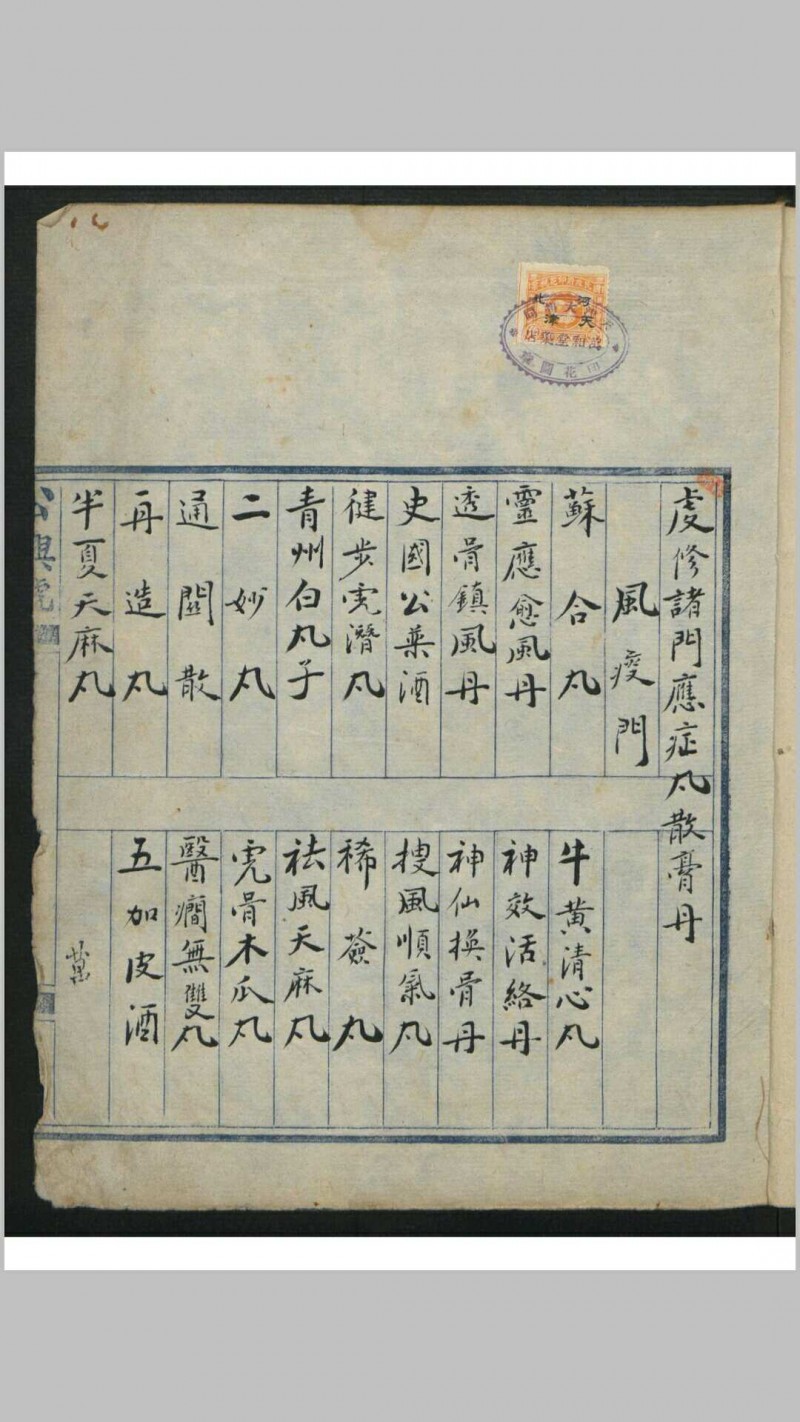 虔修諸門應症丸散膏丹
風痰門
蘇合丸
牛黄清心丸
靈應愈風丹
神效活絡丹
透骨鎮風丹
神仙換骨丹
史國公藥酒
搜風順氣丸
健步虎潛丸
稀薟丸
青州白丸子
祛風天麻丸
二妙丸
虎骨木瓜丸
通關散
醫癎無雙丸
再造丸
五加皮酒
半夏天麻丸
公興號
河北
天津
萬和堂藥店
印花